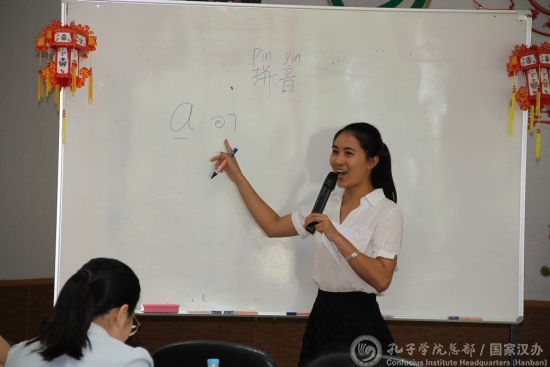 Pin yin
拼音
a
孔子学院总部 / 国家汉办
Confucius Institute Headquarters (Hanban)